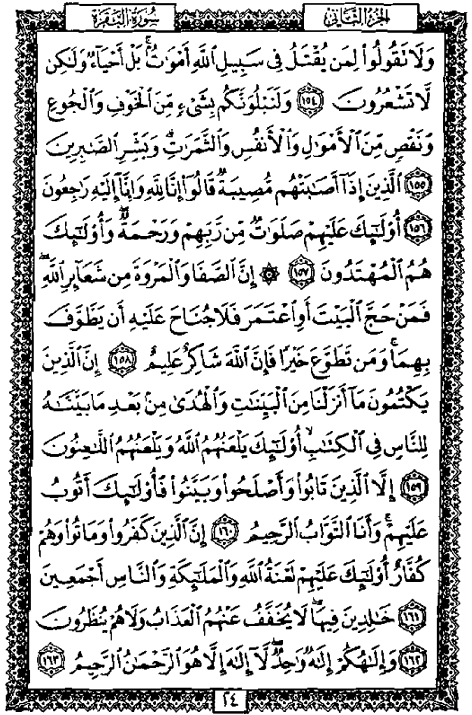 سُورَةُ البَقَرَةِ الجُزْءُ الثَّانِي
وَلَا تَقُولُوا۟ لِمَن يُقْتَلُ فِى سَبِيلِ ٱللَّهِ أَمْوَٰتٌۢ ۚ بَلْ أَحْيَآءٌ وَلَٰكِن
لَّا تَشْعُرُونَ ١٥٤ وَلَنَبْلُوَنَّكُم بِشَىْءٍ مِّنَ ٱلْخَوْفِ وَٱلْجُوعِ
وَنَقْصٍ مِّنَ ٱلْأَمْوَٰلِ وَٱلْأَنفُسِ وَٱلثَّمَرَٰتِ ۗ وَبَشِّرِ ٱلصَّٰبِرِينَ
١٥٥ ٱلَّذِينَ إِذَآ أَصَٰبَتْهُم مُّصِيبَةٌ قَالُوٓا۟ إِنَّا لِلَّهِ وَإِنَّآ إِلَيْهِ رَٰجِعُونَ
١٥٦ أُو۟لَٰٓئِكَ عَلَيْهِمْ صَلَوَٰتٌ مِّن رَّبِّهِمْ وَرَحْمَةٌ ۖ وَأُو۟لَٰٓئِكَ
هُمُ ٱلْمُهْتَدُونَ ١٥٧ ۞ إِنَّ ٱلصَّفَا وَٱلْمَرْوَةَ مِن شَعَآئِرِ ٱللَّهِ ۖ
فَمَنْ حَجَّ ٱلْبَيْتَ أَوِ ٱعْتَمَرَ فَلَا جُنَاحَ عَلَيْهِ أَن يَطَّوَّفَ
بِهِمَا ۚ وَمَن تَطَوَّعَ خَيْرًا فَإِنَّ ٱللَّهَ شَاكِرٌ عَلِيمٌ ١٥٨ إِنَّ ٱلَّذِينَ
يَكْتُمُونَ مَآ أَنزَلْنَا مِنَ ٱلْبَيِّنَٰتِ وَٱلْهُدَىٰ مِنۢ بَعْدِ مَا بَيَّنَّٰهُ
لِلنَّاسِ فِى ٱلْكِتَٰبِ ۙ أُو۟لَٰٓئِكَ يَلْعَنُهُمُ ٱللَّهُ وَيَلْعَنُهُمُ ٱللَّٰعِنُونَ
١٥٩ إِلَّا ٱلَّذِينَ تَابُوا۟ وَأَصْلَحُوا۟ وَبَيَّنُوا۟ فَأُو۟لَٰٓئِكَ أَتُوبُ
عَلَيْهِمْ ۚ وَأَنَا ٱلتَّوَّابُ ٱلرَّحِيمُ ١٦٠ إِنَّ ٱلَّذِينَ كَفَرُوا۟ وَمَاتُوا۟ وَهُمْ
كُفَّارٌ أُو۟لَٰٓئِكَ عَلَيْهِمْ لَعْنَةُ ٱللَّهِ وَٱلْمَلَٰٓئِكَةِ وَٱلنَّاسِ أَجْمَعِينَ
١٦١ خَٰلِدِينَ فِيهَا ۖ لَا يُخَفَّفُ عَنْهُمُ ٱلْعَذَابُ وَلَا هُمْ يُنظَرُونَ
١٦٢ وَإِلَٰهُكُمْ إِلَٰهٌ وَٰحِدٌ ۖ لَّآ إِلَٰهَ إِلَّا هُوَ ٱلرَّحْمَٰنُ ٱلرَّحِيمُ ١٦٣
٢٤